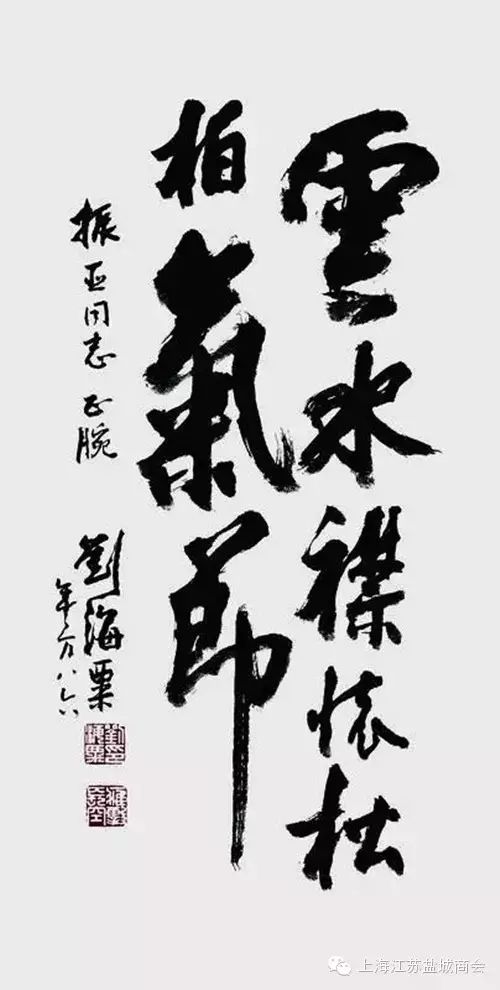 雲水襟懷松
柏氣節
振亚同志 正腕
劉海粟
年方八六
上海江苏盐城商会